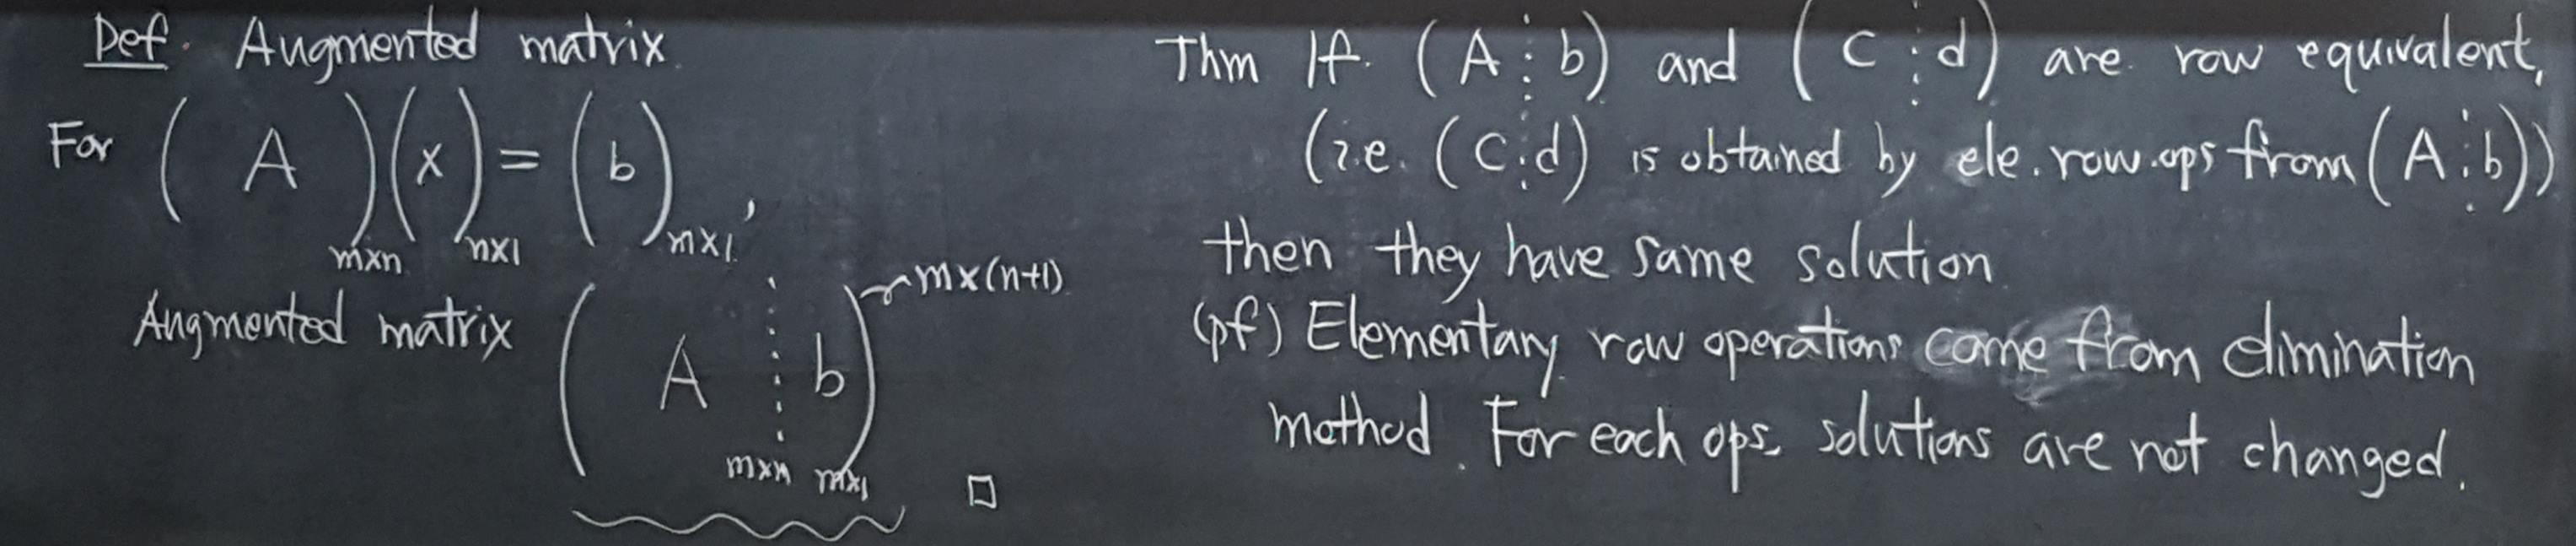 Def. Augmented matrix.
For ( A )m×n ( x )n×1 = ( b )m×1,
Augmented matrix ( A ⋮ b ) m×(n+1)
m×n m×1 □
Thm If (A ⋮ b) and (C ⋮ d) are row equivalent,
(i.e. (C ⋮ d) is obtained by ele. row ops from (A ⋮ b))
then they have same solution.
(pf) Elementary row operations come from elimination
method. For each ops, solutions are not changed.